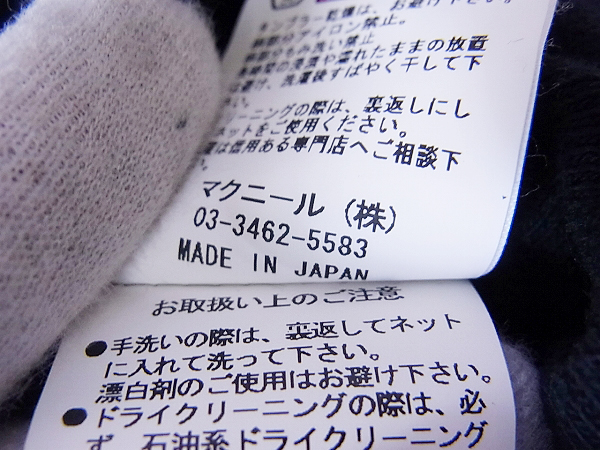 ンブラー乾燥は、お避け下さい。
アイロン禁止。
もみ洗い禁止
の浸漬や濡れたままの放置
避け、洗濯後すばやく干して下
い。
ーニングの際は、裏返しにし
ネットをご使用ください。
は信用ある専門店へご相談下
マクニール (株)
03-3462-5583
MADE IN JAPAN
お取扱い上のご注意
●手洗いの際は、裏返してネット
に入れて洗って下さい。
漂白剤のご使用はお避け下さい。
●ドライクリーニングの際は、必
ず、石油系ドライクリーニング